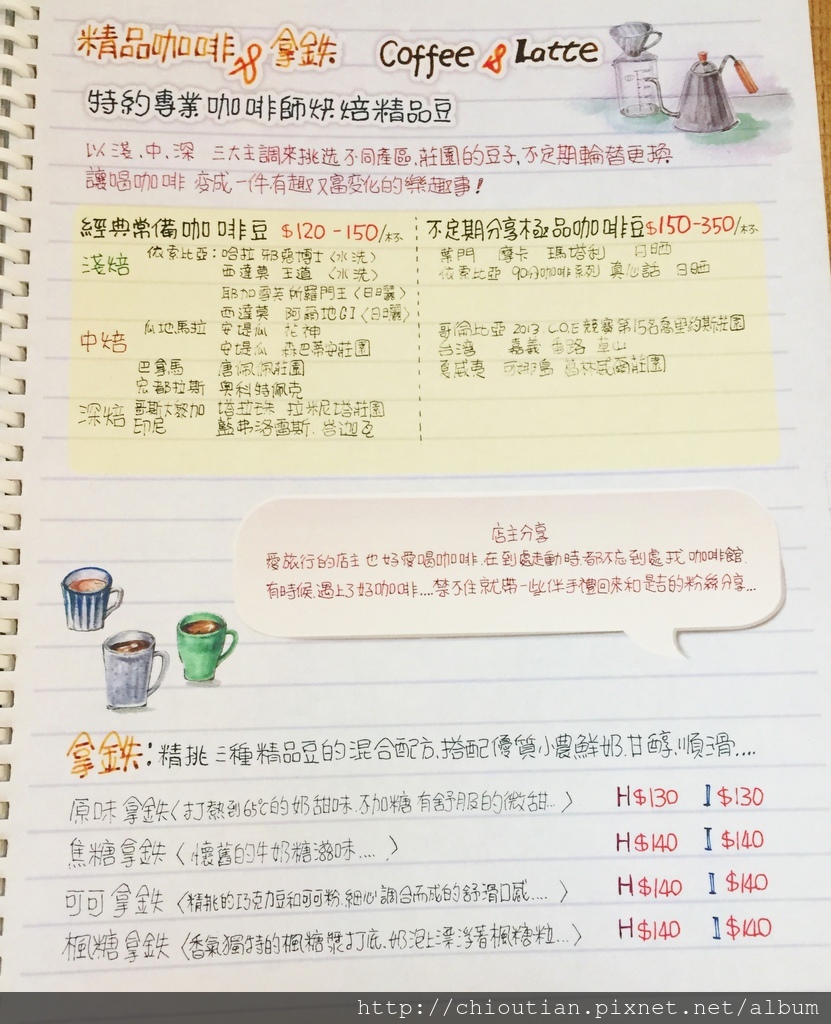 精品咖啡&拿鉄 Coffee & Latte
特約專業咖啡師烘焙精品豆
以淺、中、深 三大主調來挑选不同產區、莊園的豆子,不定期輪替更換
讓喝咖啡 变成一件有趣又富变化的樂趣事!
經典常備咖啡豆 $120-150/杯
淺焙 依索比亞:哈拉 邪惡博士〈水洗〉
西達莫 王道〈水洗〉
耶加雪芙 所羅門王〈日曬〉
西達莫 阿爾地G1〈日曬〉
中焙 瓜地馬拉 安堤瓜 花神
安堤瓜 森巴蒂安莊園
巴拿馬 唐佩佩莊園
宏都拉斯 奥科特佩克
深焙 哥斯大黎加 塔拉珠 拉米尼塔莊園
印尼 藍弗洛雷斯.
不定期分享極品咖啡豆$150-350/杯
葉門 摩卡 瑪塔利 日晒
依索比亞 90分咖啡系列 真心話 日晒
哥倫比亞 2013 C.O.E競賽第15名 喬里約斯莊園
台灣 嘉義 番路 草山
夏威夷 可那島 莊園
店主分享
愛旅行的店主也好愛喝咖啡.在到處走動時.都不忘到處找咖啡館.
有時候.遇上了好咖啡....禁不住就帶一些伴手禮回來和是吉的粉絲分享...
拿鉄:精挑三種精品豆的混合配方.搭配優質小農鮮奶.甘醇.順滑....
原味拿鉄〈打熱到65℃的奶甜味.不加糖有舒服的微甜..〉 H$130 I$130
焦糖拿鉄〈懷舊的牛奶糖滋味....〉 H$140 I$140
可可拿鉄〈精挑的巧克力豆和可可粉.細心調合而成的舒滑口感....〉 H$140 I$140
楓糖拿鉄〈香氣獨特的楓糖漿打底.奶泡上漂浮著楓糖粒...〉 H$140 I$140
http://chioutian.pixnet.net/album